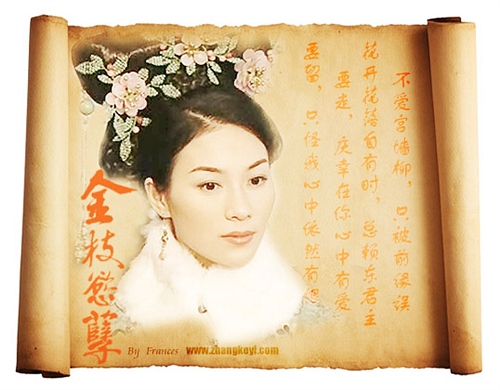 不爱宫墙柳，只被前缘误
花开花落自有时，总赖东君主
要走，庆幸在你心中有爱
要留，只怪我心中依然有
金枝慾孽
By Frances www.zhangkeyi.com